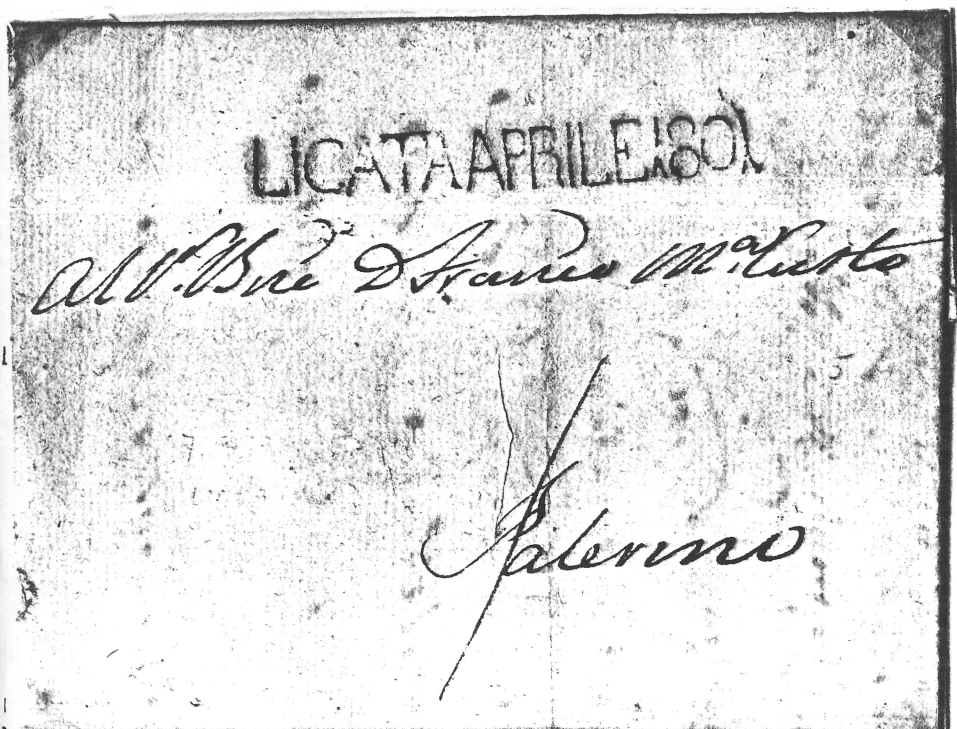 LICATA APRILE 1801
Al Sr. Bne D Franco Ma. Custo
Palermo